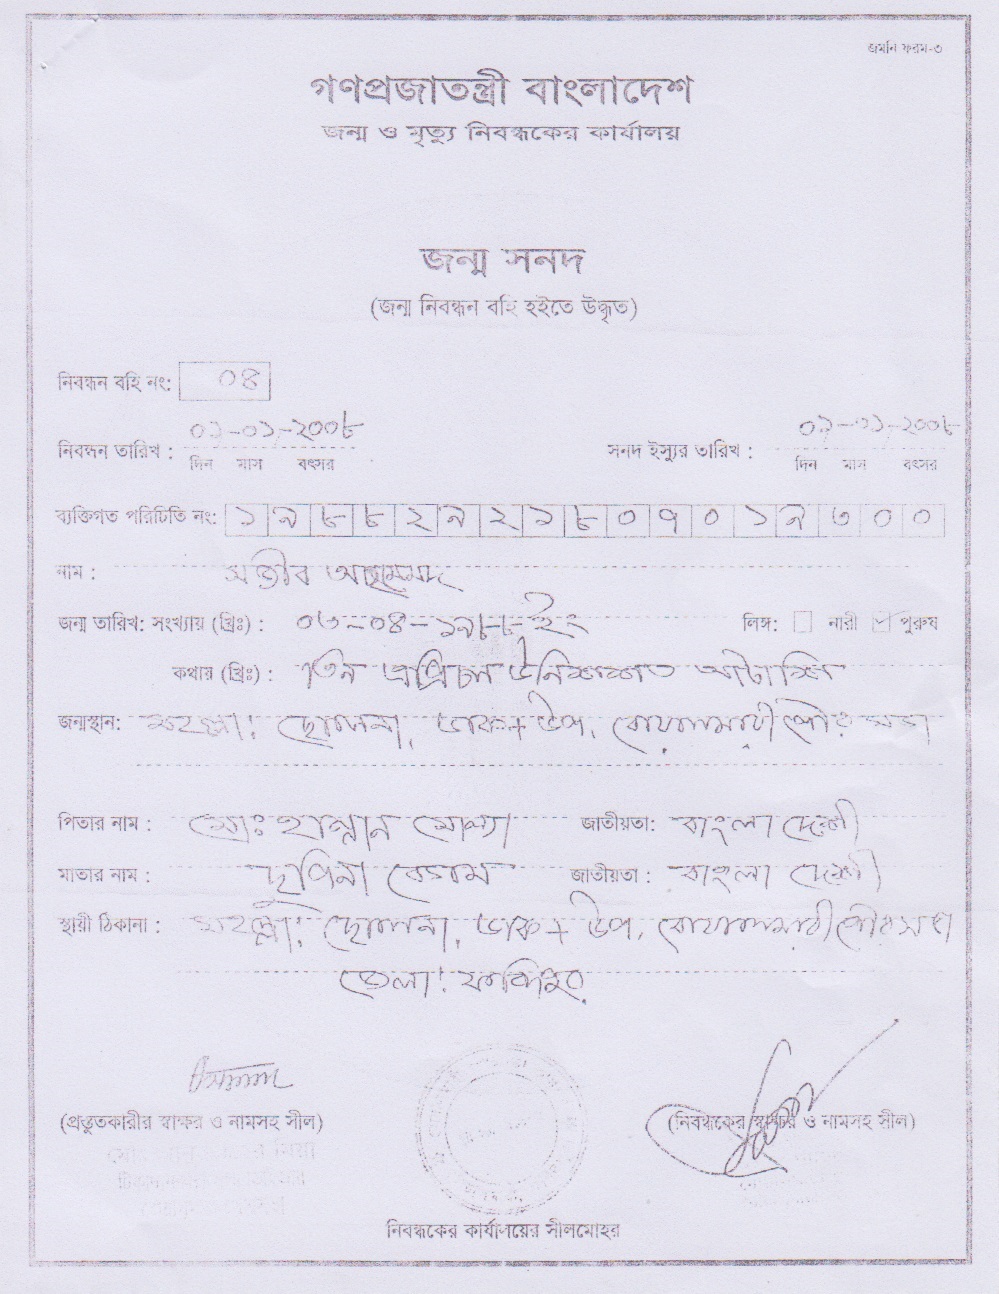 জমনি ফরম-৩
গণপ্রজাতন্ত্রী বাংলাদেশ
জন্ম ও মৃত্যু নিবন্ধকের কার্যালয়
জন্ম সনদ
(জন্ম নিবন্ধন বহি হইতে উদ্ধৃত)
নিবন্ধন বহি নং: ০৪
০১-০১-২০০৮
নিবন্ধন তারিখ : দিন মাস বৎসর
০১-০১-২০০৮
সনদ ইস্যুর তারিখ : দিন মাস বৎসর
ব্যক্তিগত পরিচিতি নং: ১৯৮৮২৯২১৮০৭০১৯৩০০
নাম : সজীব আহম্মেদ
জন্ম তারিখ: সংখ্যায় (খ্রিঃ) : ০৩-০৪-১৯৮৮ইং লিঙ্গ: নারী পুরুষ
কথায় (খ্রিঃ) : তিন এপ্রিল উনিশশত আটাশি
জন্মস্থান: মহল্লা: ছোলনা, ডাক+উপ, বোয়ালমারী পৌরসভা
পিতার নাম : মোঃ হান্নান মোল্যা জাতীয়তা: বাংলাদেশী
মাতার নাম : বেগম জাতীয়তা : বাংলাদেশী
স্থায়ী ঠিকানা : মহল্লা: ছোলনা, ডাক+উপ, বোয়ালমারী পৌরসভা
জেলা: ফরিদপুর
(প্রস্তুতকারীর স্বাক্ষর ও নামসহ সীল) (নিবন্ধকের স্বাক্ষর ও নামসহ সীল)
নিবন্ধকের কার্যালয়ের সীলমোহর